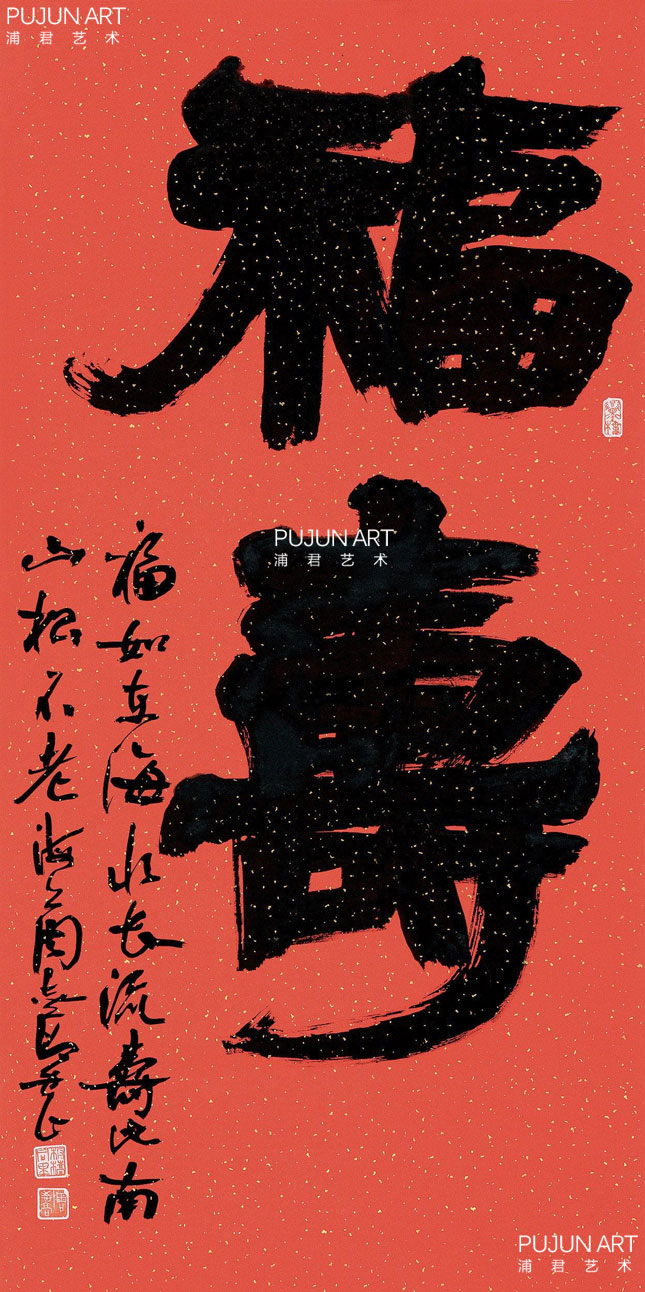 PUJUN ART
浦君艺术
福
壽
PUJUN ART
浦君艺术
福如东海水长流壽比南
山松不老海上周志高
PUJUN ART
浦君艺术